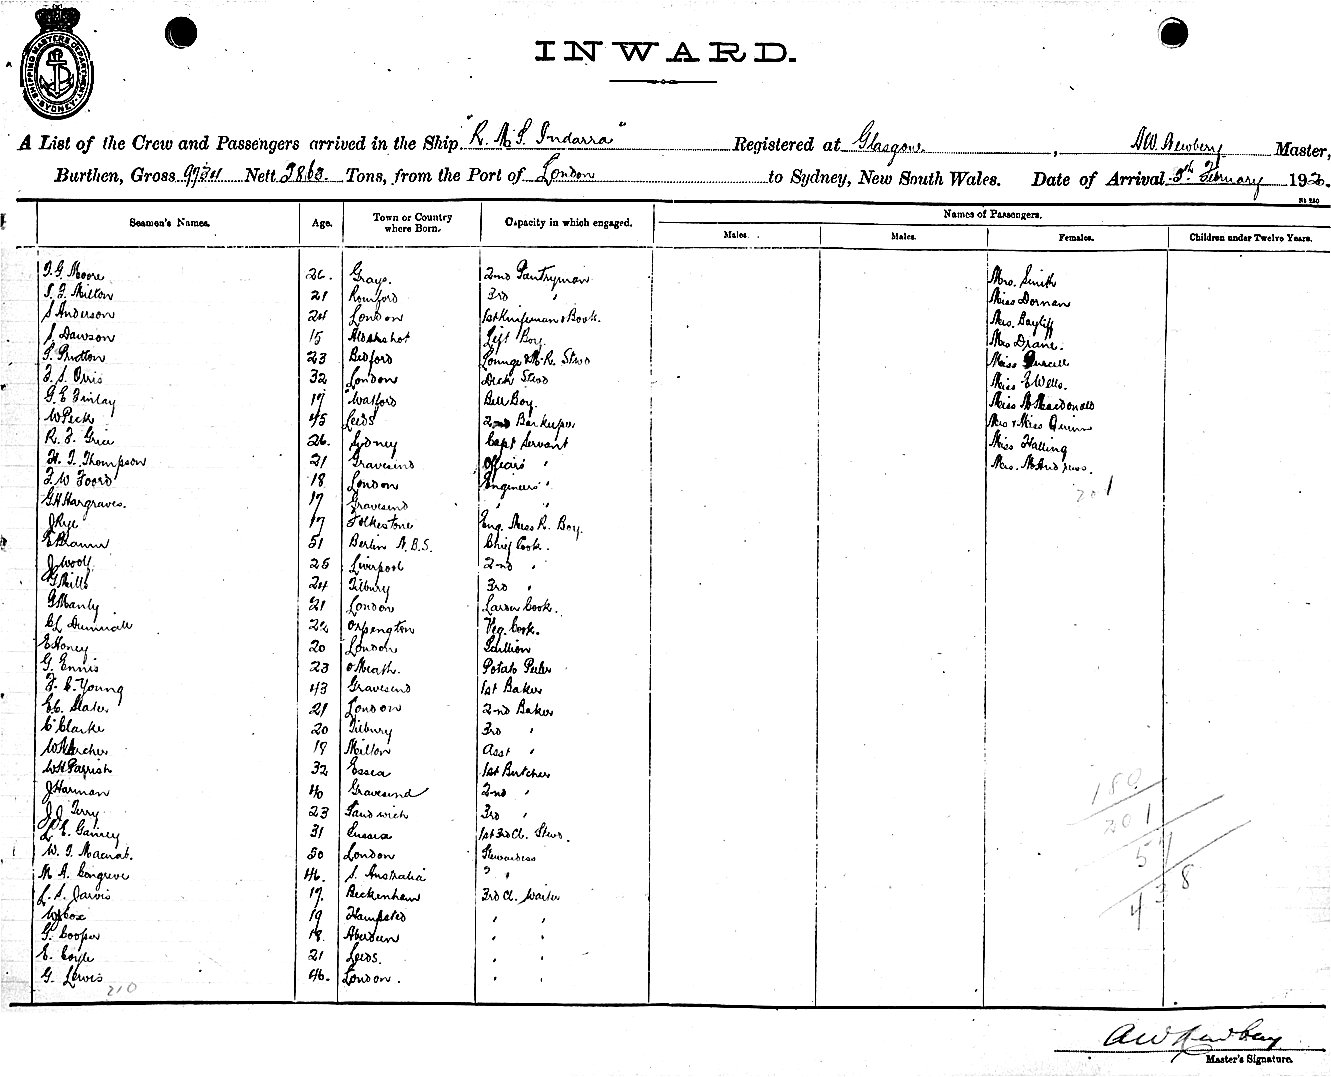 SHIPPING MASTERS DEPARTMENT SYDNEY
INWARD.
A List of the Crew and Passengers arrived in the Ship "R.M.S. Indarra" Registered at Glasgow, AW. Newbery Master,
Burthen, Gross 9734 Nett Tons, from the Port of London to Sydney, New South Wales. Date of Arrival 5th February 19
Seamen's Names. Age. Town or Country where Born. Capacity in which engaged. Names of Passengers.
Males. Males. Females. Children under Twelve Years.
Moore 26. Grays. 2nd Pantryman Mrs. Smith
Milton 21 Romford 3rd " Miss Dornan
S Anderson 24 London 1st Knifeman & Book. Mrs. Bayliff
J Dawson 15 Aldershot Lift Boy. Mrs Drane.
23 Bedford Lounge & M.R. Stwd Miss
32 London Deck Stwd Miss E Wells.
G E Finlay 17 Watford Bell Boy. Miss Macdonald
W Peck 45 Leeds 2nd Barkeeper Mrs & Miss Quinn
R. F. 26. Sydney Capt Servant Miss Halling
H. T. Thompson 21 Gravesend Officers " Mrs. McAndrews.
F. W Foord 18 London Engineers " 201
G H Hargraves. 17 Gravesend " "
J Rye 17 Folkestone Eng. Mess R. Boy.
51 Berlin N.B.S. Chief Cook.
J Woolf 25 Liverpool 2nd "
G Mills 24 Tilbury 3rd "
G Manly 21 London Larder Cook.
22 Orpington Veg. Cook.
E Honey 20 London Scullion
G. Ennis 23 O'Meath. Potato Peeler
F. C. Young 43 Gravesend 1st Baker
E C. Slater 21 London 2nd Baker
C Clarke 20 Tilbury 3rd "
Archer 19 Milton Asst "
W H Parrish 32 Essex 1st Butcher
J Harman 40 Gravesend 2nd "
J J Terry 23 Sandwich 3rd "
L E. Gainey 31 Sussex 1st 3rd Cl. Stwd.
W. J. Macnab. 50 London Stewardess
M A Congreve 46. S. Australia " "
L. S. Jarvis 17. Beckenham 3rd Cl. Waiter
W Cox 19 Hampstead " "
G. Cooper 18. Aberdeen " "
E. Coyle 21 Leeds. " "
G. Lewis 46. London. " "
210
180
201
57
438
AW Newbery
Master's Signature.